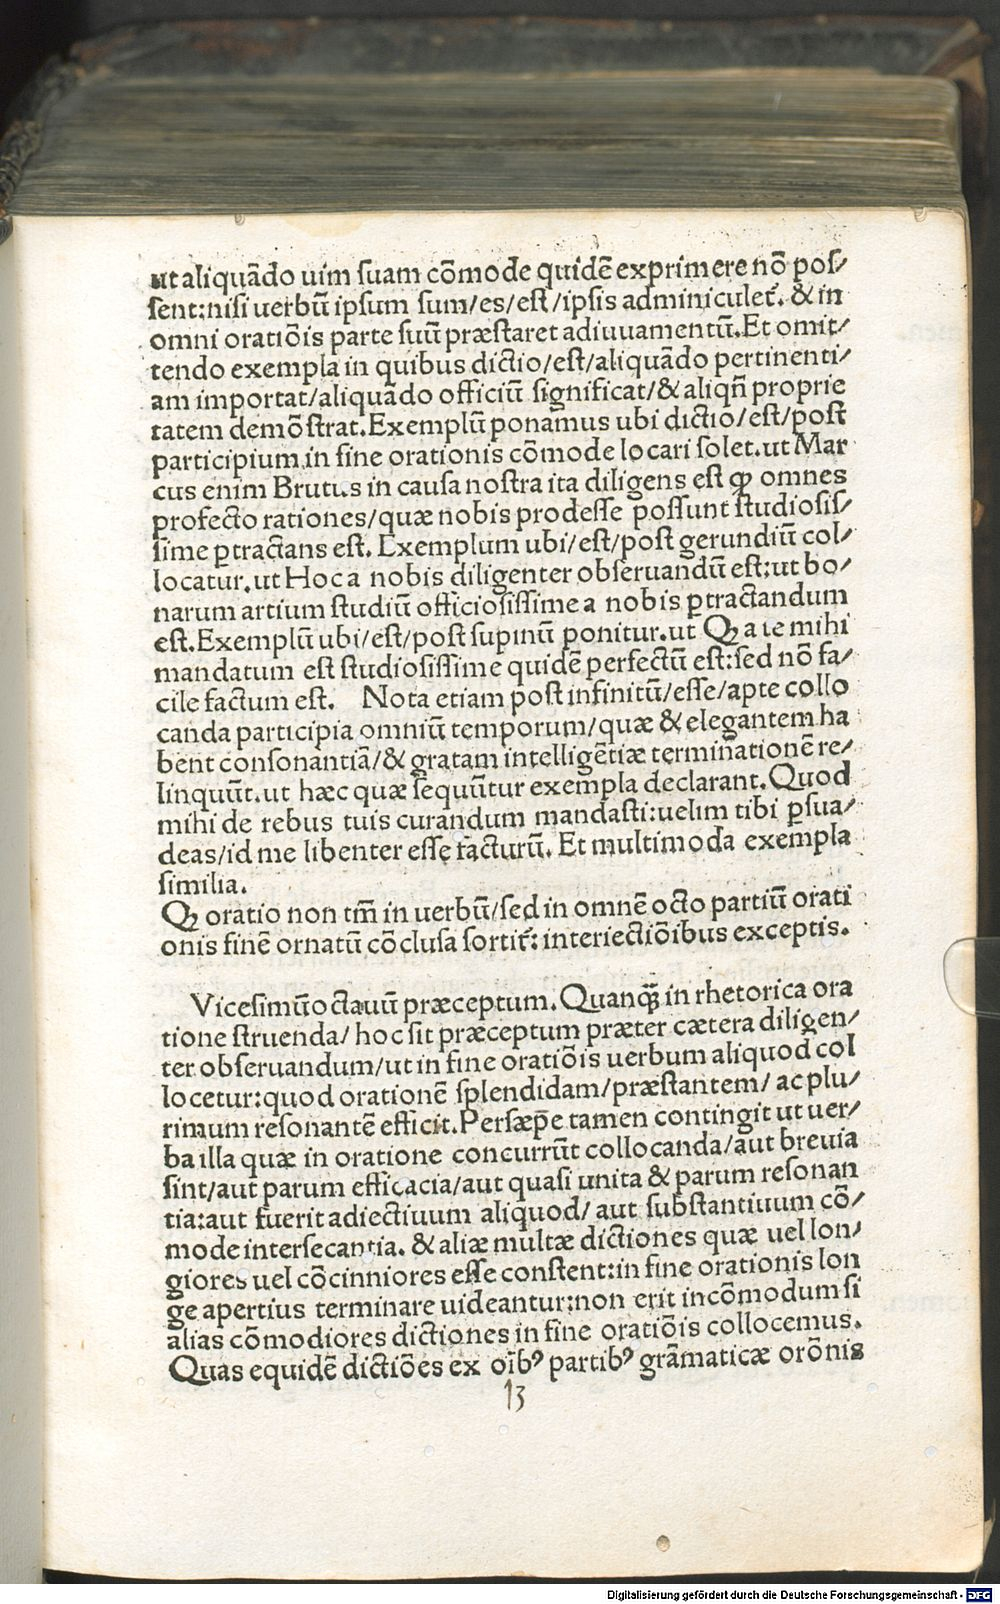 ut aliquãdo uim suam cõmode quidẽ exprimere nõ pos/
sent:nisi uerbũ ipsum sum/es/est/ipsis adminiculet᷑. & in
omni oratiõis parte suũ præstaret adiuuamentũ.Et omit/
tendo exempla in quibus dictio/est/aliquãdo pertinenti/
am importat/aliquãdo officiũ significat/& aliqñ proprie
tatem demõstrat.Exemplũ ponamus ubi dictio/est/post
participium in fine orationis cõmode locari solet.ut Mar
cus enim Brutus in causa nostra ita diligens est ꝙ omnes
profecto rationes/quæ nobis prodesse possunt studiosis/
sime ꝑtractans est. Exemplum ubi/est/post gerundiũ col/
locatur.ut Hoc a nobis diligenter obseruandũ est:ut bo/
narum artium studiũ officiosissime a nobis ꝑtractandum
est.Exemplũ ubi/est/post supinũ ponitur.ut Qꝫ a te mihi
mandatum est studiosissime quidẽ perfectũ est:sed nõ fa/
cile factum est. Nota etiam post infinitũ/esse/apte collo
canda participia omniũ temporum/quæ & elegantem ha
bent consonantiã/& gratam intelligẽtiæ terminationẽ re/
linquũt.ut hæc quæ sequũtur exempla declarant.Quod
mihi de rebus tuis curandum mandasti:uelim tibi ꝑsua/
deas/id me libenter esse facturũ. Et multimoda exempla
similia.
Qꝫ oratio non tm̃ in uerbũ/sed in omnẽ octo partiũ orati
onis finẽ ornatũ cõclusa sortit᷑: interiectiõibus exceptis.
Vicesimũoctauũ præceptum.Quanꝗ̃ in rhetorica ora
tione struenda/hoc sit præceptum præter cætera diligen/
ter obseruandum/ut in fine oratiõis uerbum aliquod col
locetur:quod orationẽ splendidam/præstantem/ ac plu/
rimum resonantẽ efficit.Persæpe tamen contingit ut uer/
ba illa quæ in oratione concurrũt collocanda/aut breuia
sint/aut parum efficacia/aut quasi unita & parum resonan
tia:aut fuerit adiectiuum aliquod/ aut substantiuum cõ/
mode intersecantia. & aliæ multæ dictiones quæ uel lon/
giores uel cõcinniores esse constent:in fine orationis lon
ge apertius terminare uideantur:non erit incõmodum si
alias cõmodiores dictiones in fine oratiõis collocemus.
Quas equidẽ dictiões ex oĩbꝰ partibꝰ grãmaticæ orõnis
13
Digitalisierung gefördert durch die Deutsche Forschungsgemeinschaft - DFG